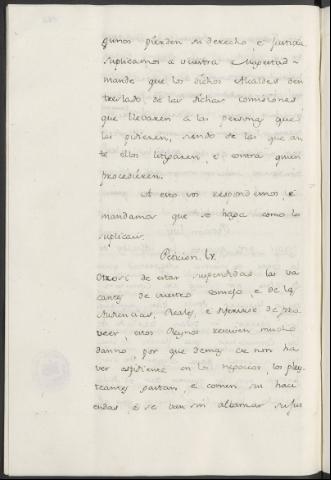 gunos pierden su derecho e justicia
suplicamos a vuestra Magestad
mande que los dichos Alcaldes den
treslado, de las dichas comisiones
que llevaren a las personas que
las pidieren, siendo de las que an
te ellos litigaren, e contra quien
procedieren.
A esto vos respondemos, e
mandamos que se haga como lo
suplicais.
Peticion Lx.
Otrosi de estar suspendidas las va
cantes de vuestro consejo, e de las
Audiencias, Reales, e diferirse de pro
veer, estos Reynos reciven mucho
danno, por que demas que non ha
ver espediente en los negocios, los pley
teantes gastan, e comen su haci
enda, e se van sin alcanzar su jus